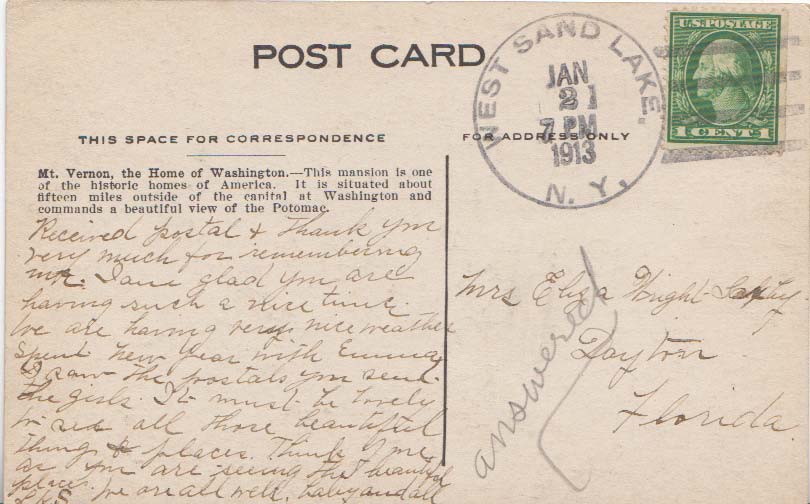 POST CARD
WEST SAND LAKE,
N. Y.
JAN
21
7 PM
1913
U.S. POSTAGE
1 CENT 1
THIS SPACE FOR CORRESPONDENCE
FOR ADDRESS ONLY
Mt. Vernon, the Home of Washington.—This mansion is one
of the historic homes of America. It is situated about
fifteen miles outside of the capital at Washington and
commands a beautiful view of the Potomac.
Received postal & thank you
very much for remembering
me. I am glad you are
having such a nice time.
We are having very nice weather
Spent New Year with Emma
I saw the postals you send
the girls. It must be lovely
to see all those beautiful
things & places. Think of me
as you are seeing the beautiful
places.
We are all well, baby and all
Mrs Eliza Wright
Dayton
Florida
answered